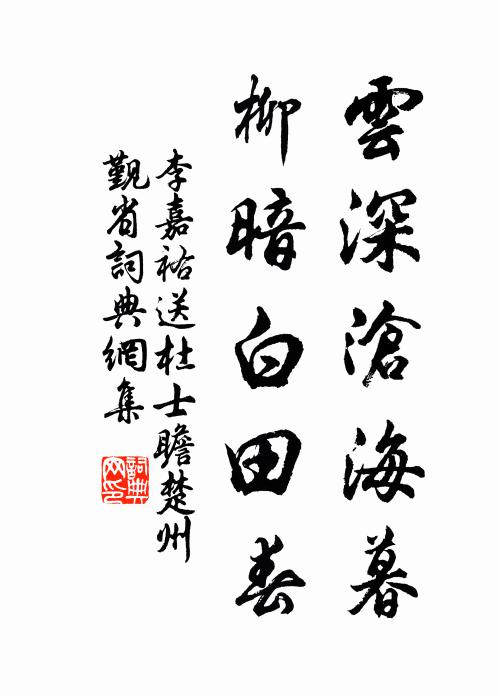 雲深滄海暮
柳暗白田春
李嘉祐送杜士瞻楚州
覲省詞典網集
詞典
网印